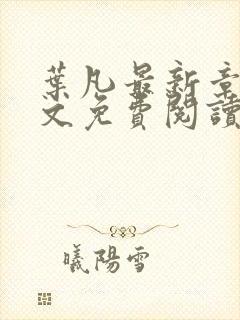 葉凡最新章
文免費閱讀
曦陽雪